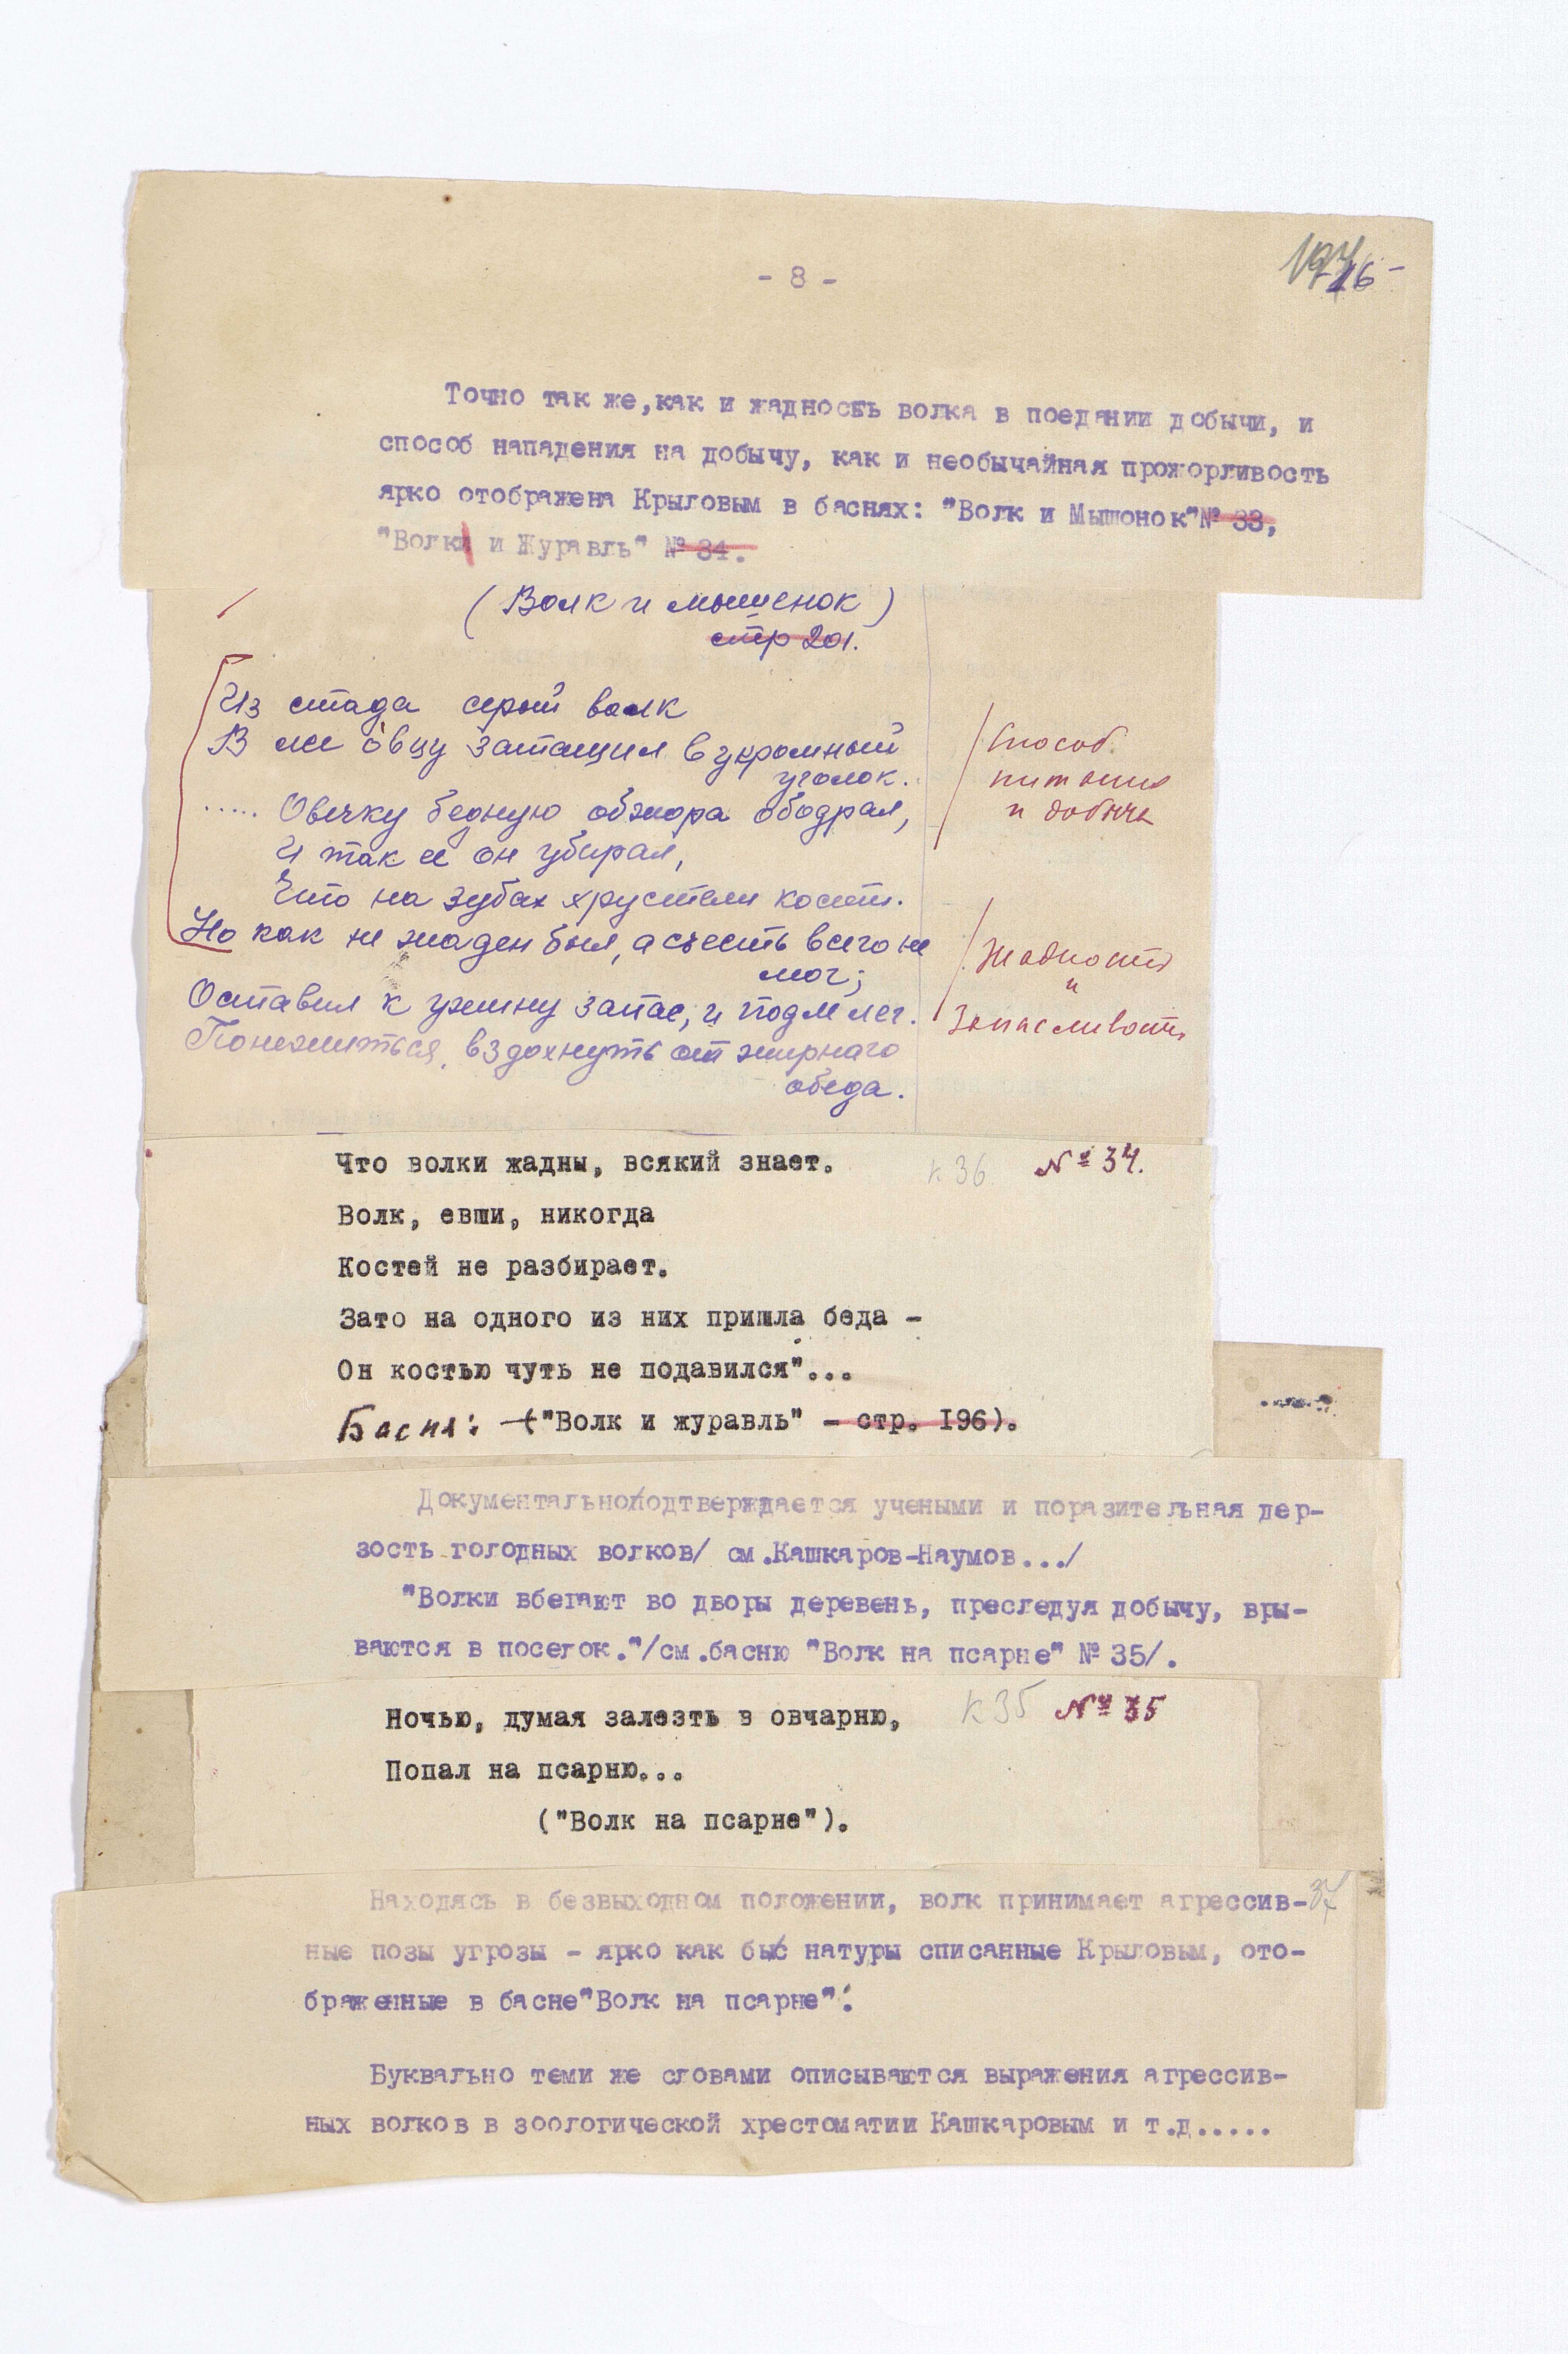 - 8 -
16 -
Точно так же, как и жадность волка в поедании добычи, и
способ нападения на добычу, как и необычайная прожорливость
ярко отображена Крыловым в баснях: "Волк и Мышонок" № 33,
"Волк и Журавль" № 34.
(Волк и мышенок)
стр 201.
Из стада серый волк
В лес о́вцу затащил в укромный
уголок.
..... Овечку бедную обжора ободрал,
И так ее он убирал,
Что на зубах хрустели кости.
Способ
питания
и добычи
Но как не жаден был, а съесть всего не
мог;
Оставил к ужину запас, и подле лег.
Понежиться, вздохнуть от жирнаго
обеда.
Жадность
и
Запасливость
Что волки жадны, всякий знает. к 36 № 34.
Волк, евши, никогда
Костей не разбирает.
Зато на одного из них пришла беда -
Он костью чуть не подавился"...
Басня: ("Волк и журавль" - стр. 196).
Документально/подтверждается учеными и поразительная дер-
зость голодных волков/ см.Кашкаров-Наумов.../
"Волки вбегают во дворы деревень, преследуя добычу, вры-
ваются в поселок."/см.басню "Волк на псарне" № 35/.
Ночью, думая залезть в овчарню, к 35 № 35
Попал на псарню...
("Волк на псарне").
Находясь в безвыходном положении, волк принимает агрессив- 37
ные позы угрозы - ярко как бы с натуры списанные Крыловым, ото-
браженные в басне "Волк на псарне":
Буквально теми же словами описываются выражения агрессив-
ных волков в зоологической хрестоматии Кашкаровым и т.д.....